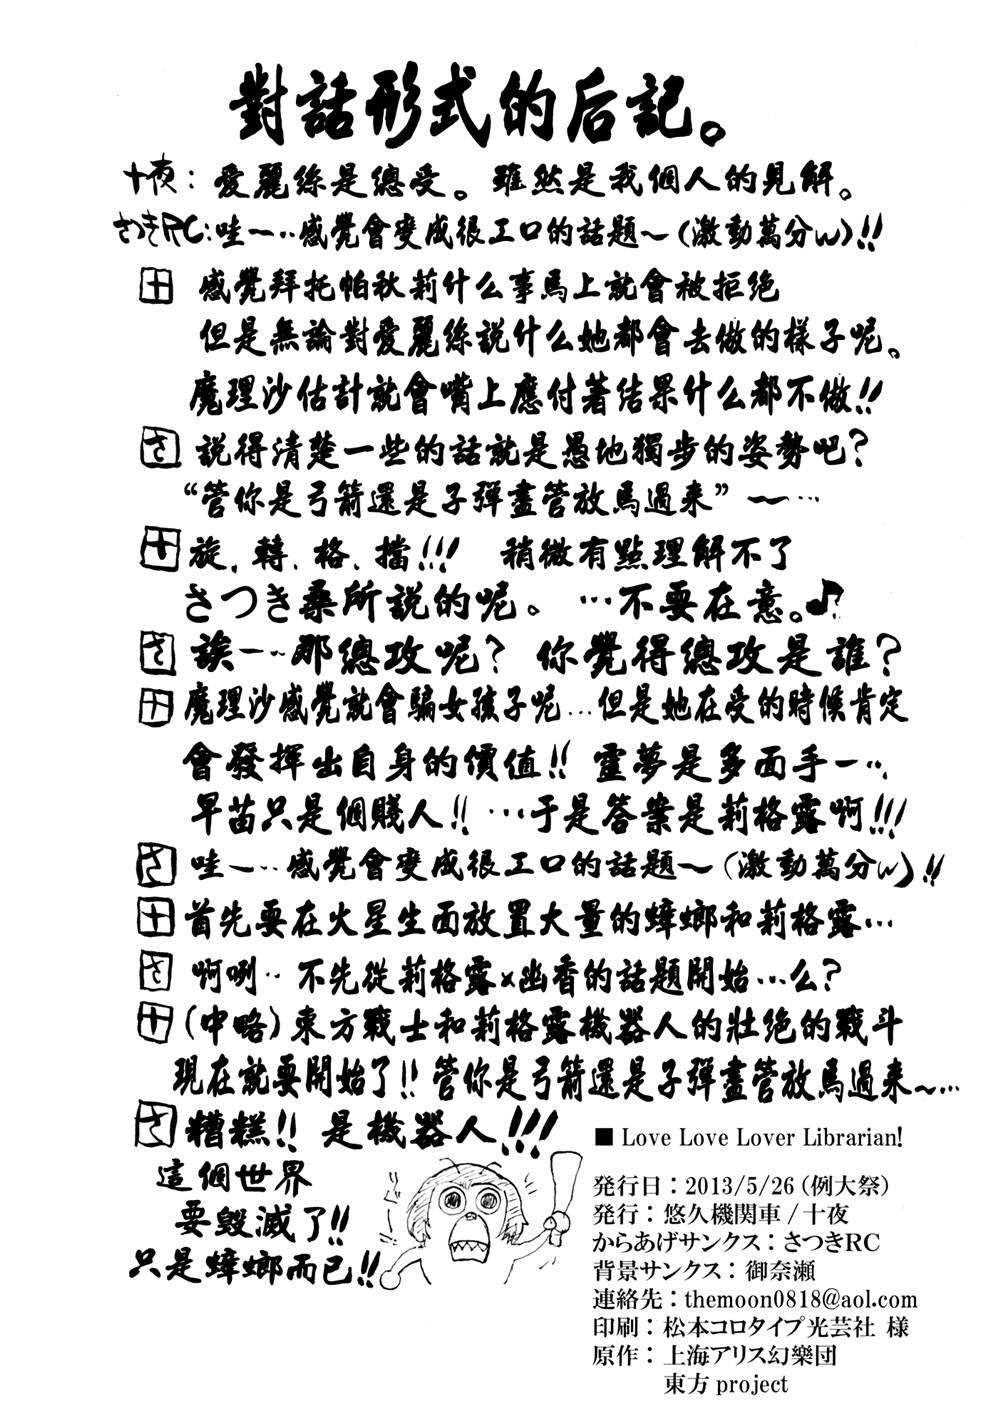 對話形式的后記。
十夜：愛麗絲是總受。雖然是我個人的見解。
さつきRC：哇一‥感覺會變成很工口的話題～（激動萬分w）!!
十 感覺拜托帕秋莉什么事馬上就會被拒絕
但是無論對愛麗絲說什么她都會去做的樣子呢。
魔理沙估計就會嘴上應付著結果什么都不做!!
さ 說得清楚一些的話就是愚地獨步的姿勢吧？
“管你是弓箭還是子彈盡管放馬過來”～…
十 旋、轉、格、擋!!! 稍微有點理解不了
さつき桑所說的呢。…不要在意。♪
さ 誒一‥那總攻呢？你覺得總攻是誰？
十 魔理沙感覺就會騙女孩子呢…但是她在受的時候肯定
會發揮出自身的價值!! 靈夢是多面手一‥
早苗只是個賤人!! …于是答案是莉格露啊!!!
さ 哇一‥感覺會變成很工口的話題～（激動萬分w）!!
十 首先要在火星生面放置大量的蟑螂和莉格露…
さ 啊咧‥不先從莉格露×幽香的話題開始…么？
十（中略）東方戰士和莉格露機器人的壯絕的戰斗
現在就要開始了!! 管你是弓箭還是子彈盡管放馬過來～…
さ 糟糕!! 是機器人!!!
這個世界
要毀滅了!!
只是蟑螂而已!!
■ Love Love Lover Librarian!
発行日：2013/5/26（例大祭）
発行：悠久機関車 / 十夜
からあげサンクス：さつきRC
背景サンクス：御奈瀬
連絡先：themoon0818@aol.com
印刷：松本コロタイプ光芸社 様
原作：上海アリス幻樂団
東方 project